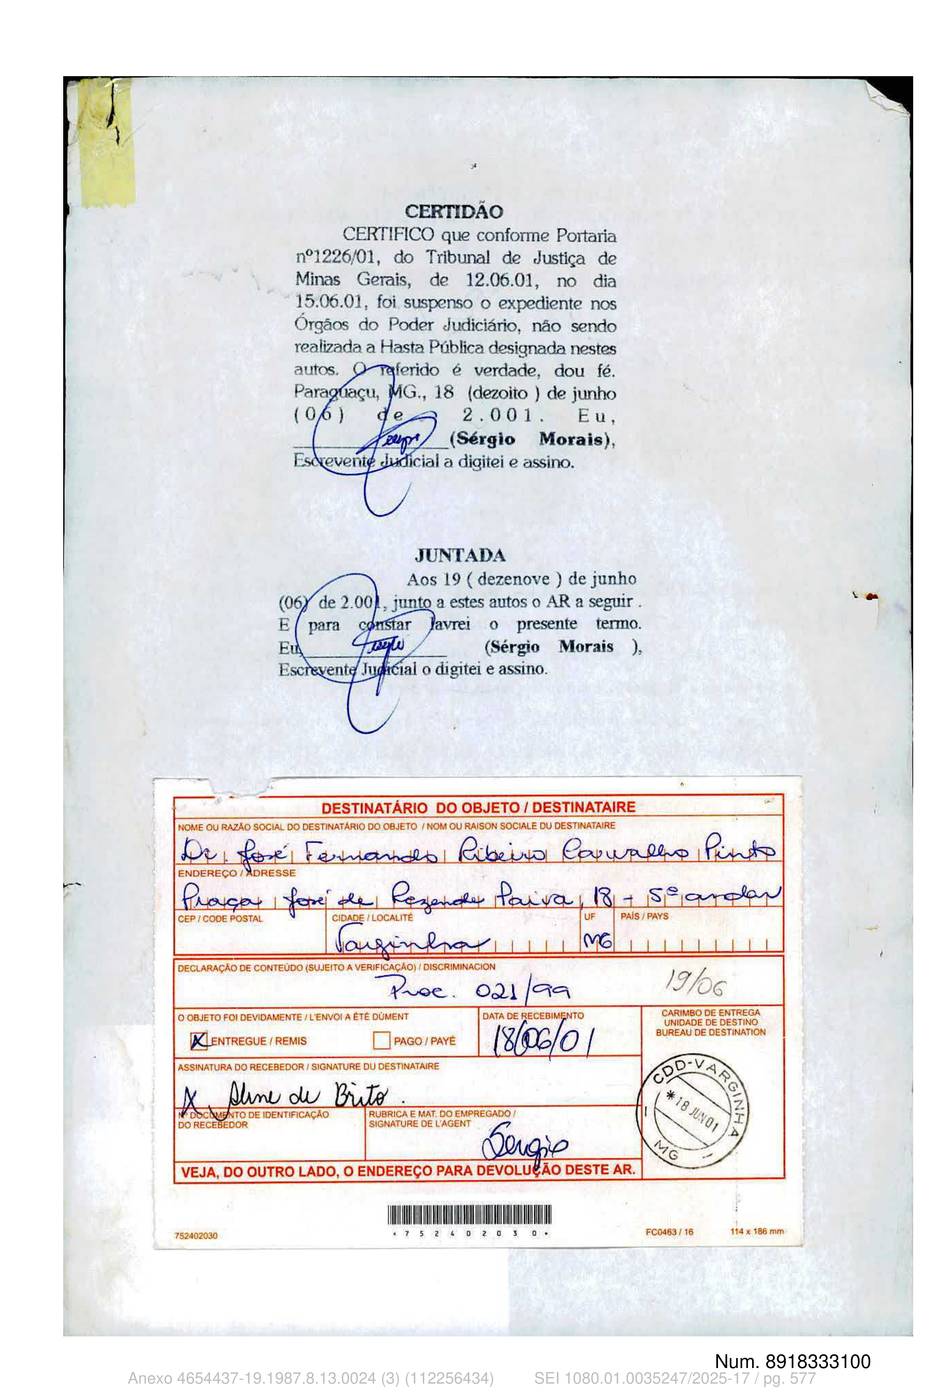 CERTIDÃO
CERTIFICO que conforme Portaria
nº1226/01, do Tribunal de Justiça de
Minas Gerais, de 12.06.01, no dia
15.06.01, foi suspenso o expediente nos
Órgãos do Poder Judiciário, não sendo
realizada a Hasta Pública designada nestes
autos. O referido é verdade, dou fé.
Paraguaçu, MG., 18 (dezoito ) de junho
(06) de 2.001. Eu,
(Sérgio Morais),
Escrevente Judicial a digitei e assino.
JUNTADA
Aos 19 ( dezenove ) de junho
(06) de 2.001, junto a estes autos o AR a seguir .
E para constar lavrei o presente termo.
Eu, (Sérgio Morais ),
Escrevente Judicial o digitei e assino.
DESTINATÁRIO DO OBJETO / DESTINATAIRE
NOME OU RAZÃO SOCIAL DO DESTINATÁRIO DO OBJETO / NOM OU RAISON SOCIALE DU DESTINATAIRE
Dr. José Fernando Ribeiro Carvalho Pinto
ENDEREÇO / ADRESSE
Praça José de Rezende Paiva, 18 - 5º andar
CEP / CODE POSTAL CIDADE / LOCALITÉ UF PAÍS / PAYS
Varginha MG
DECLARAÇÃO DE CONTEÚDO (SUJEITO A VERIFICAÇÃO) / DISCRIMINACION
Proc. 021/99 19/06
O OBJETO FOI DEVIDAMENTE / L'ENVOI A ÉTÉ DÛMENT
X ENTREGUE / REMIS PAGO / PAYÉ
DATA DE RECEBIMENTO
18/06/01
CARIMBO DE ENTREGA
UNIDADE DE DESTINO
BUREAU DE DESTINATION
ASSINATURA DO RECEBEDOR / SIGNATURE DU DESTINATAIRE
X Aline de Brito.
CDD-VARGINHA
*18 JUN 01
MG
Nº DOCUMENTO DE IDENTIFICAÇÃO
DO RECEBEDOR
RUBRICA E MAT. DO EMPREGADO /
SIGNATURE DE L'AGENT
Sergio
VEJA, DO OUTRO LADO, O ENDEREÇO PARA DEVOLUÇÃO DESTE AR.
*752402030*
752402030 FC0463 / 16 114 x 186 mm
Num. 8918333100
Anexo 4654437-19.1987.8.13.0024 (3) (112256434) SEI 1080.01.0035247/2025-17 / pg. 577